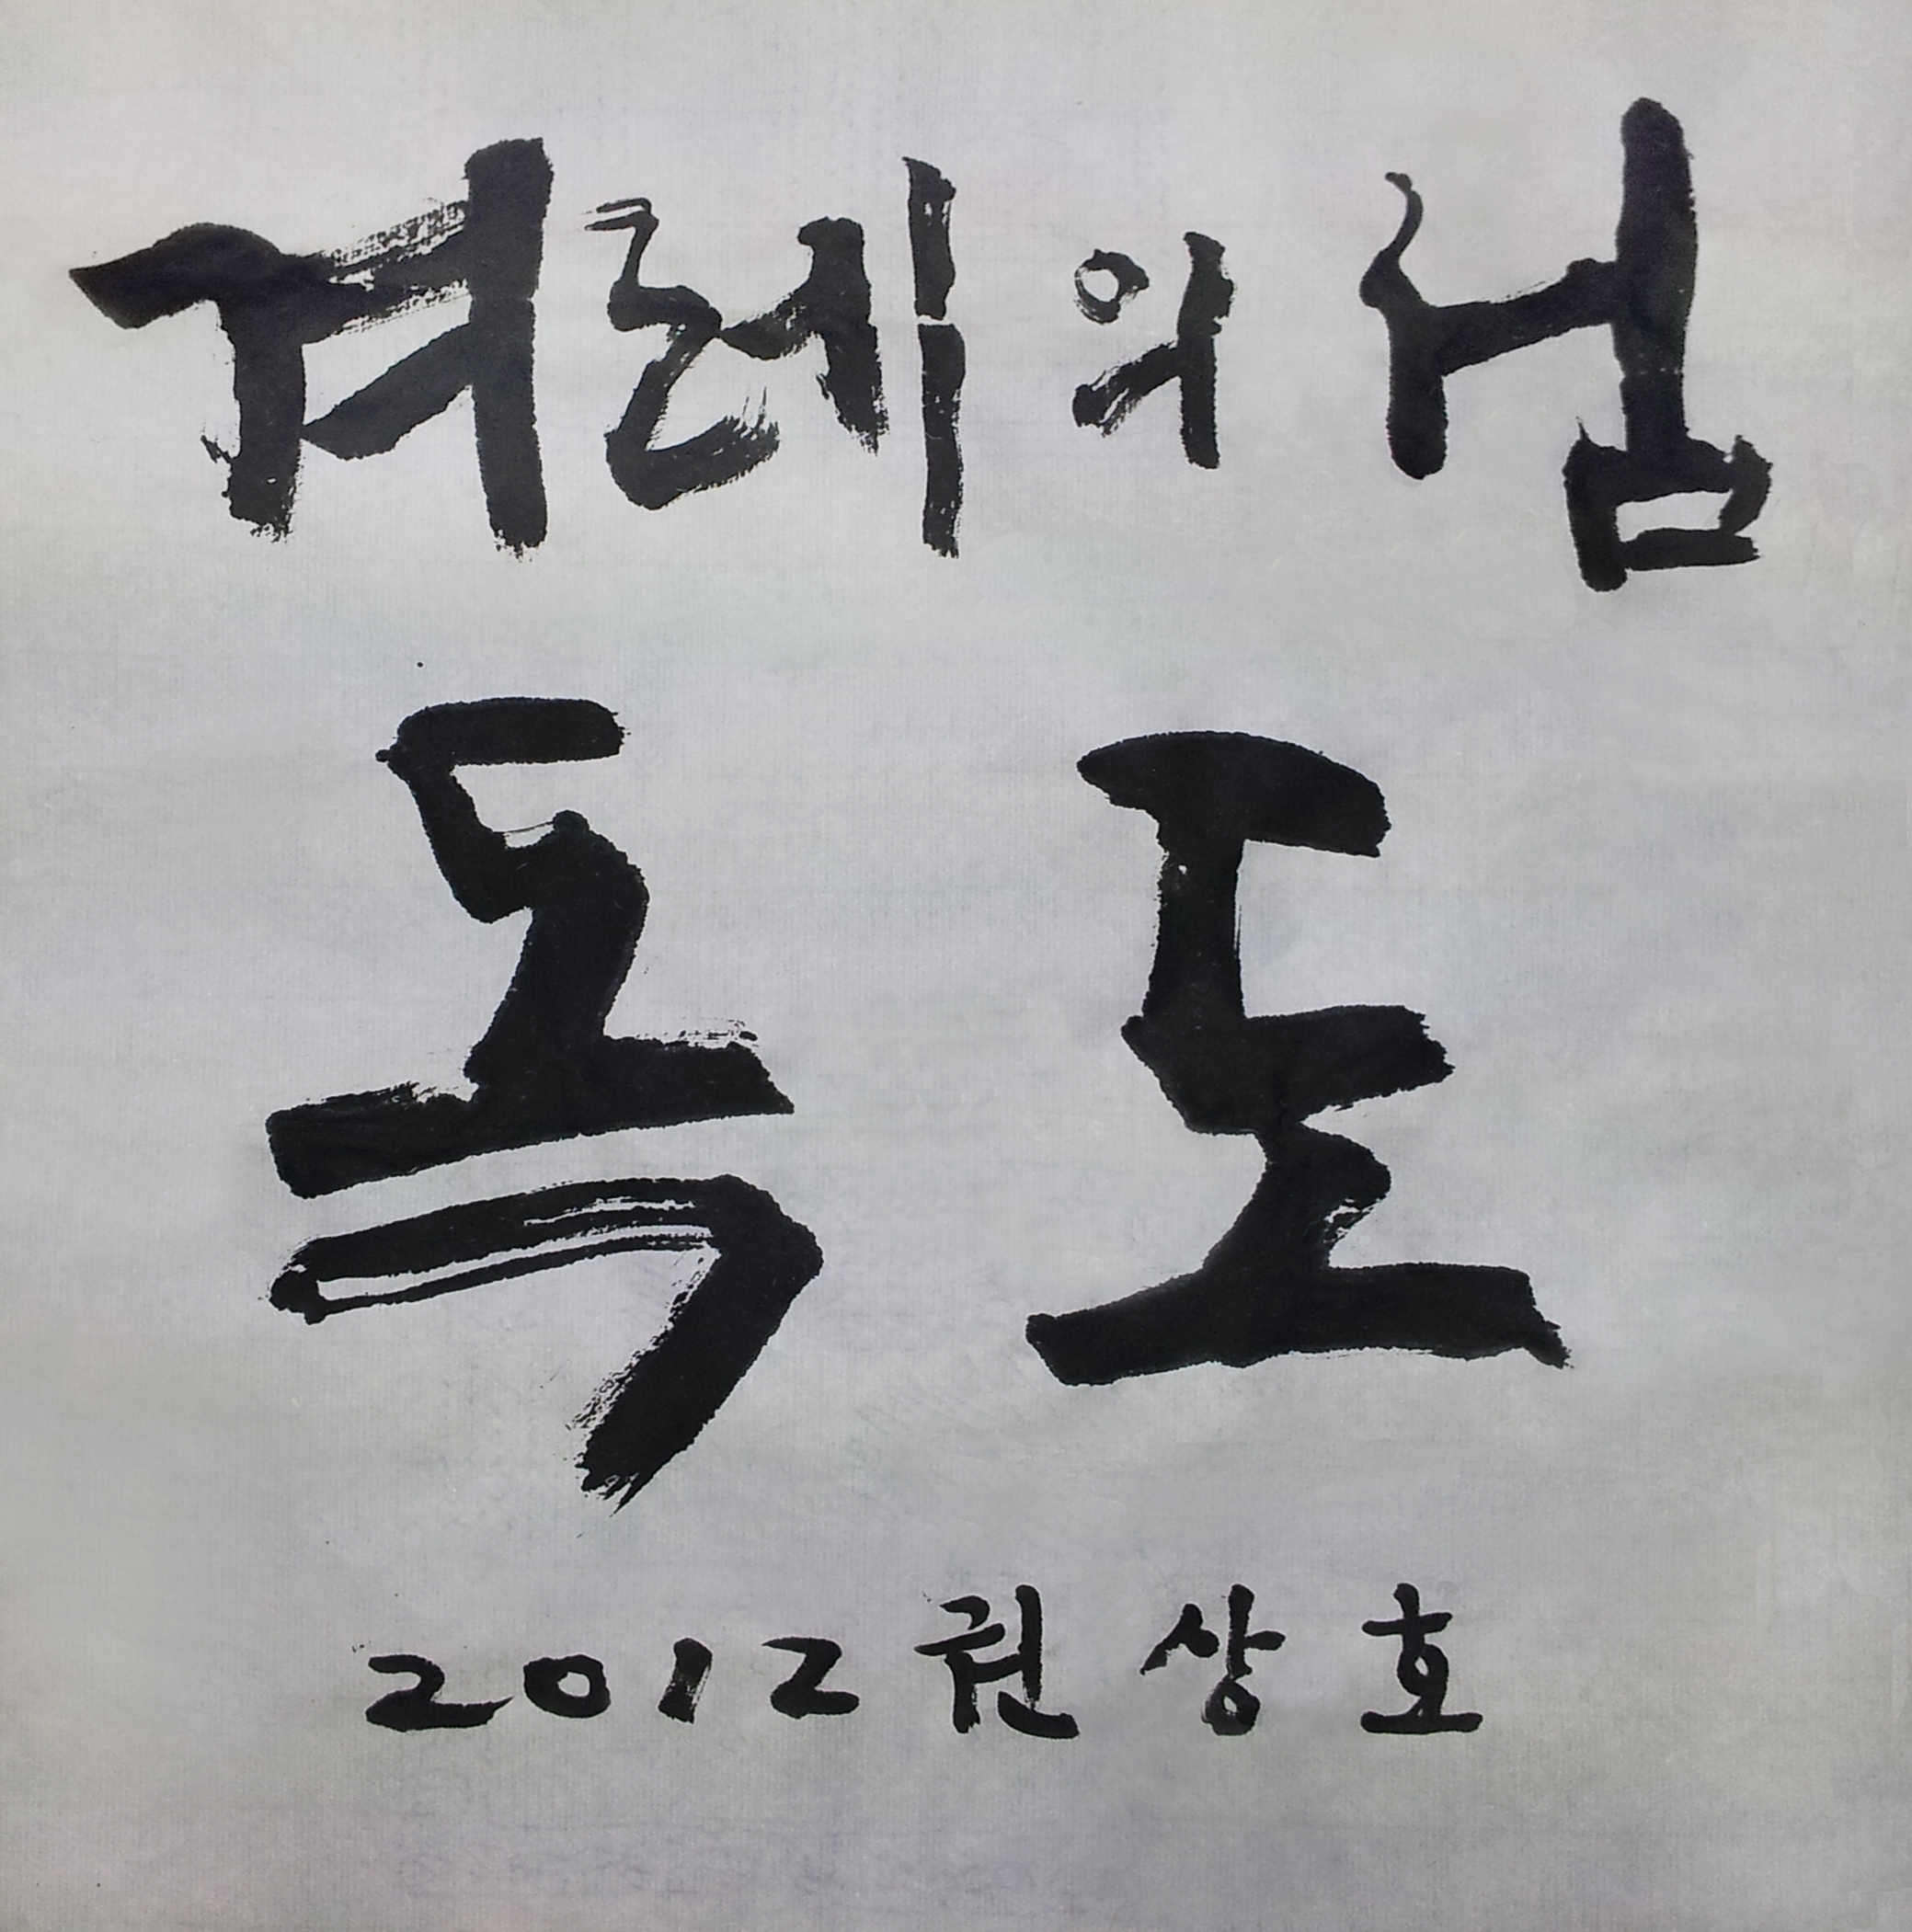 겨레의 섬
독도
2012 권상호